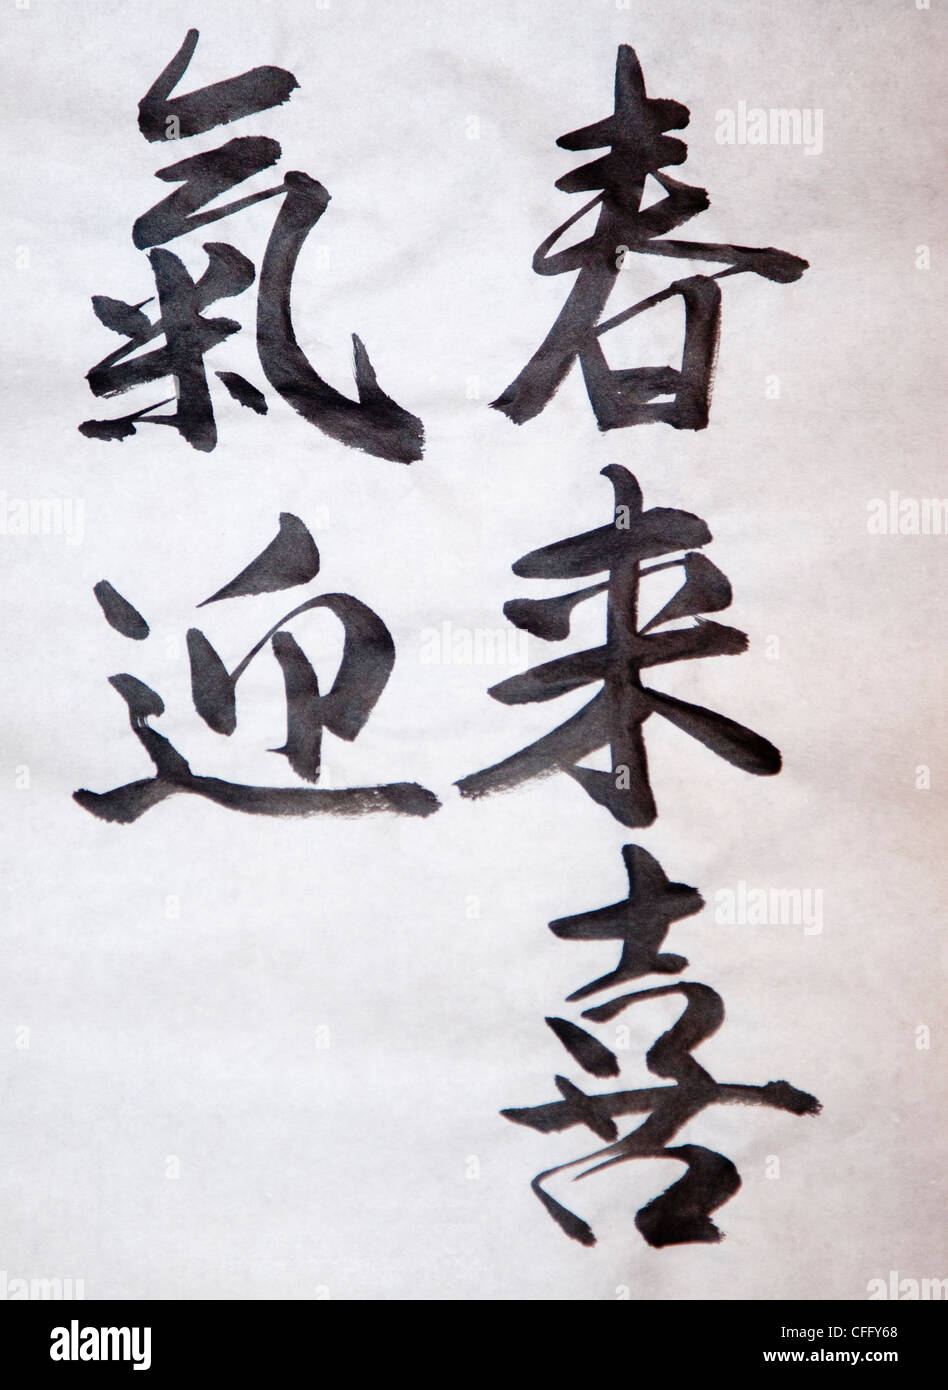 春来喜
氣迎
alamy
Image ID: CFFY68
www.alamy.com